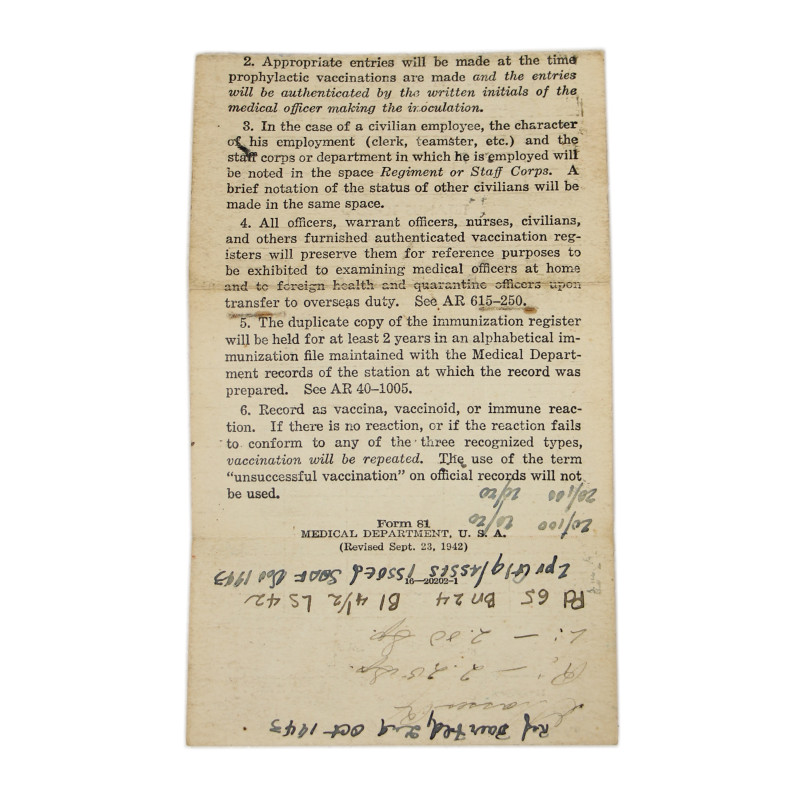 2. Appropriate entries will be made at the time
prophylactic vaccinations are made and the entries
will be authenticated by the written initials of the
medical officer making the inoculation.
3. In the case of a civilian employee, the character
of his employment (clerk, teamster, etc.) and the
staff corps or department in which he is employed will
be noted in the space Regiment or Staff Corps. A
brief notation of the status of other civilians will be
made in the same space.
4. All officers, warrant officers, nurses, civilians,
and others furnished authenticated vaccination reg-
isters will preserve them for reference purposes to
be exhibited to examining medical officers at home
and to foreign health and quarantine officers upon
transfer to overseas duty. See AR 615–250.
5. The duplicate copy of the immunization register
will be held for at least 2 years in an alphabetical im-
munization file maintained with the Medical Depart-
ment records of the station at which the record was
prepared. See AR 40–1005.
6. Record as vaccina, vaccinoid, or immune reac-
tion. If there is no reaction, or if the reaction fails
to conform to any of the three recognized types,
vaccination will be repeated. The use of the term
“unsuccessful vaccination” on official records will not
be used.
Form 81
MEDICAL DEPARTMENT, U. S. A.
(Revised Sept. 23, 1942)
16—20202-1
Oct 1943
R: — 2.25 Sp.
L: — 2.00 Sp.
Pd 65 Bn 24 Bl 4 1/2 LS 42
2 pr GI glasses issued SAAF Nov 1943
20/100 20/20
20/100 20/20